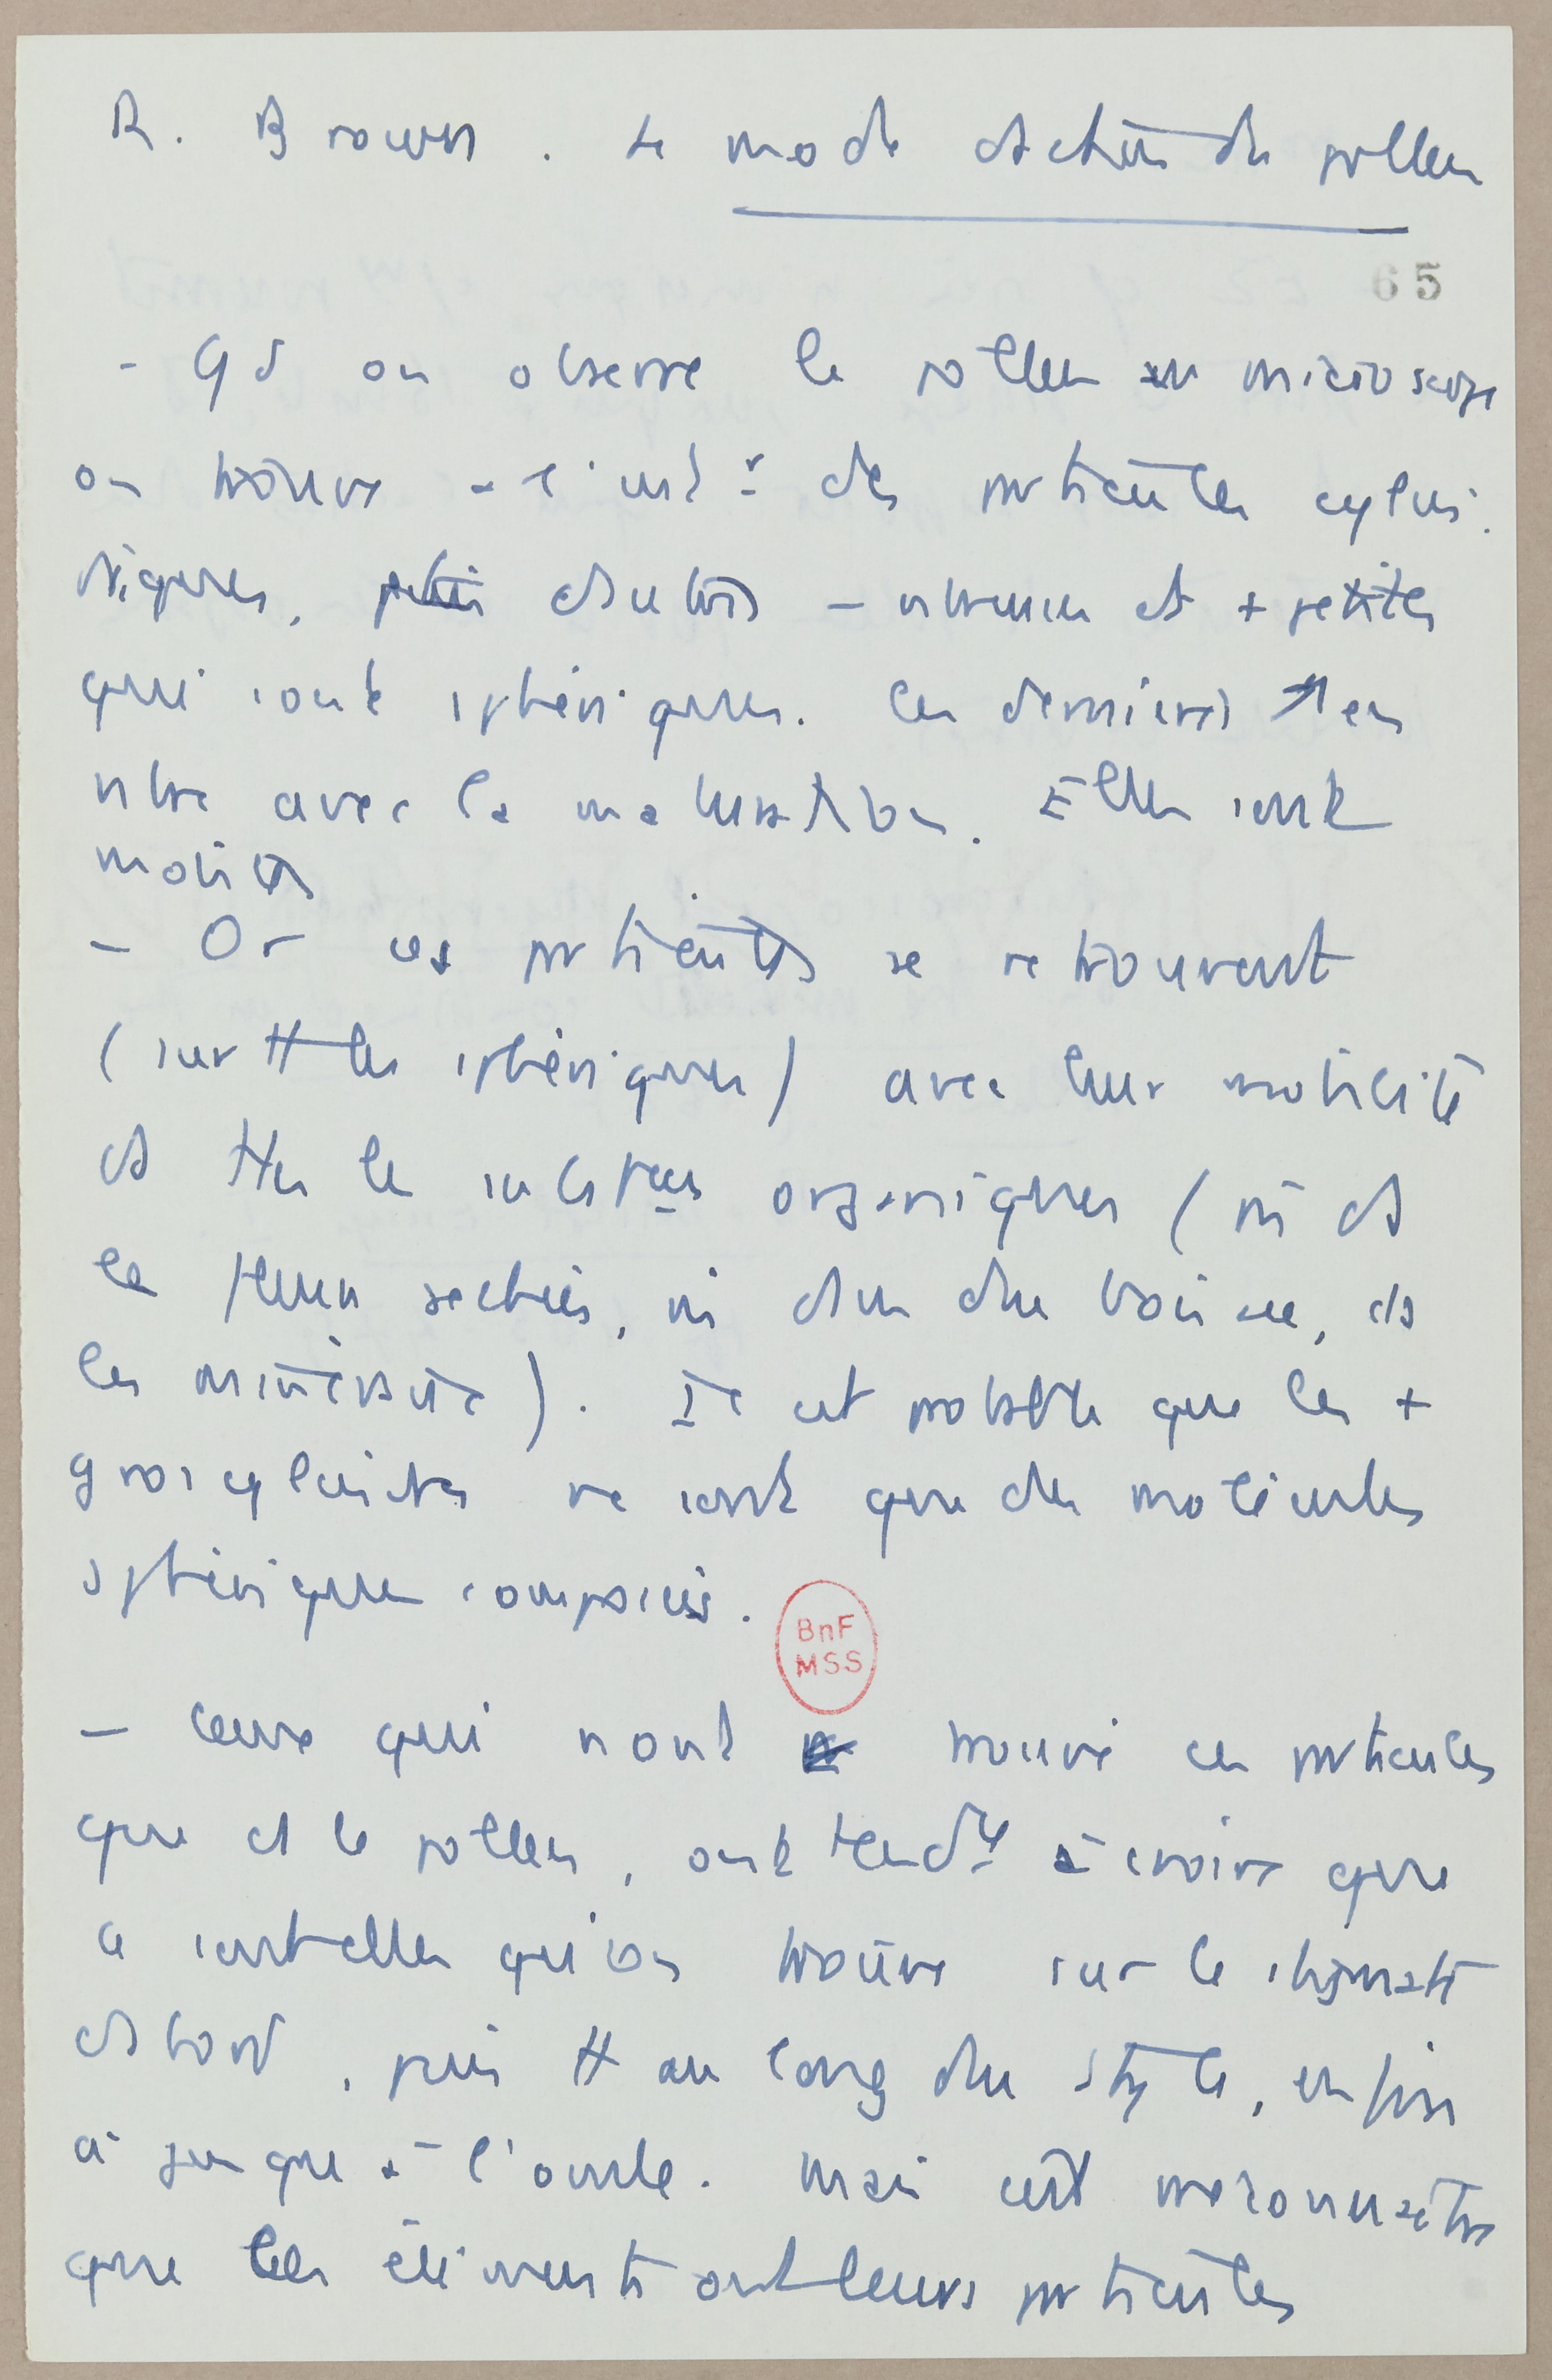 R. Brown. Le mode d'action du pollen
65
- Qd on observe le pollen au microscope
on trouve à l'intr des particules cylin-
driques, d'autres - nbreuses et + petites
qui sont sphériques. Ces dernières ↗ en
nbre avec la maturation. Elles sont
mobiles
- Or ces particules se retrouvent
(surtt les sphériques) avec leur mobilité
ds ttes les substces organiques (ni ds
les séchées, ni du bois sec, ds
les minéraux). Il est probable que les +
gros cylindres ne sont que des molécules
sphériques composées.
BnF
MSS
- Ceux qui n'ont trouvé ces particules
que ds le pollen, ont tendce à croire que
ce sont elles qu'on trouve sur le stigmate
d'abord, puis tt au long du style, enfin
jusque à l'ovule. Mais c'est méconnaître
que les éléments ont leurs particules